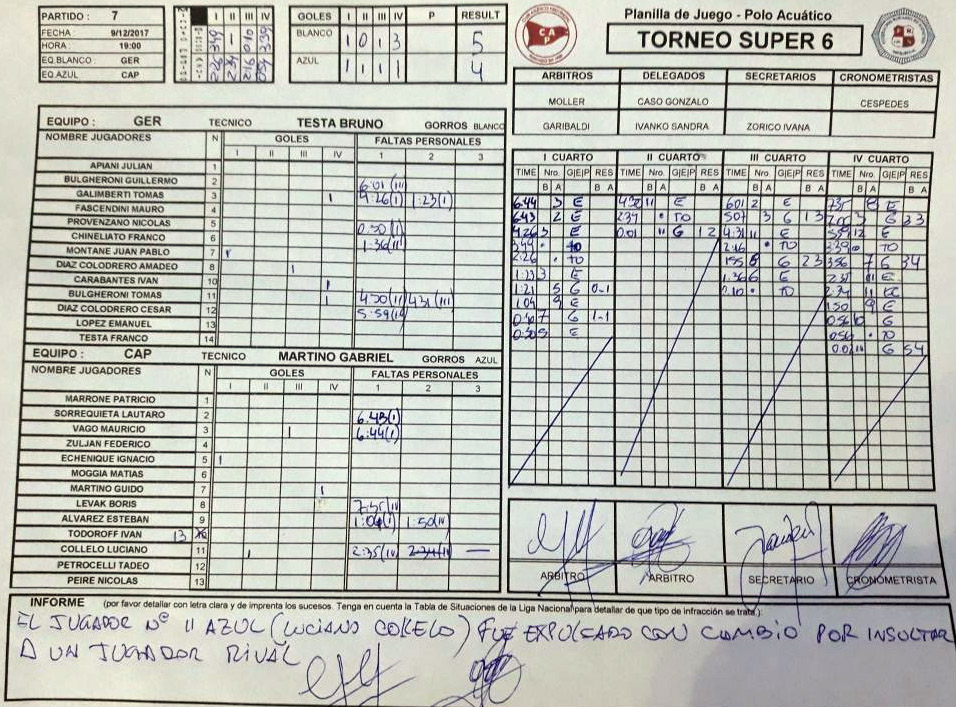 PARTIDO : 7
FECHA : 9/12/2017
HORA : 19:00
EQ.BLANCO : GER
EQ.AZUL : CAP
I II III IV
GOLES I II III IV P RESULT
BLANCO 1 0 1 3 5
AZUL 1 1 1 1 4
CAP
Planilla de Juego - Polo Acuático
TORNEO SUPER 6
ARBITROS DELEGADOS SECRETARIOS CRONOMETRISTAS
MOLLER CASO GONZALO CESPEDES
GARIBALDI IVANKO SANDRA ZORICO IVANA
EQUIPO : GER TECNICO TESTA BRUNO GORROS BLANCO
NOMBRE JUGADORES N GOLES FALTAS PERSONALES
I II III IV 1 2 3
APIANI JULIAN 1
BULGHERONI GUILLERMO 2 6:01(III)
GALIMBERTI TOMAS 3 I 4:26(I) 1:23(I)
FASCENDINI MAURO 4
PROVENZANO NICOLAS 5 0:30(I)
CHINELIATO FRANCO 6 1:36(III)
MONTANE JUAN PABLO 7 I
DIAZ COLODRERO AMADEO 8 I
CARABANTES IVAN 10 I
BULGHERONI TOMAS 11 I 4:30(II) 4:31(III)
DIAZ COLODRERO CESAR 12 5:59(IV)
LOPEZ EMANUEL 13
TESTA FRANCO 14
EQUIPO : CAP TECNICO MARTINO GABRIEL GORROS AZUL
NOMBRE JUGADORES N GOLES FALTAS PERSONALES
I II III IV 1 2 3
MARRONE PATRICIO 1
SORREQUIETA LAUTARO 2 6:43(I)
VAGO MAURICIO 3 I 6:44(I)
ZULJAN FEDERICO 4
ECHENIQUE IGNACIO 5 I
MOGGIA MATIAS 6
MARTINO GUIDO 7 I
LEVAK BORIS 8 7:35(IV)
ALVAREZ ESTEBAN 9 1:04(I) 1:50(IV)
TODOROFF IVAN 13
COLLELO LUCIANO 11 I 2:35(IV) 2:34(IV) —
PETROCELLI TADEO 12
PEIRE NICOLAS 13
I CUARTO II CUARTO III CUARTO IV CUARTO
TIME Nro. G|E|P RES TIME Nro. G|E|P RES TIME Nro. G|E|P RES TIME Nro. G|E|P RES
B A B A B A B A B A B A B A B A
6:44 3 E 4:30 11 E 6:01 2 E 7:35 8 E
6:43 2 E 2:39 TO 5:07 3 G 1 3 3 G 3 3
4:26 3 E 0:01 11 G 1 2 4:31 11 E 5:59 12 E
TO 2:16 TO 3:39 TO
2:26 TO 1:55 8 G 2 3 3:56 7 G 3 4
1:23 3 E 1:36 6 E 2:35 11 E
1:21 5 G 0-1 2:10 TO 2:34 11 EC
1:04 9 E 1:50 9 E
0:40 7 G 1-1 0:56 10 G
0:30 5 E 0:56 TO
0:02 11 G 5 4
ARBITRO ARBITRO SECRETARIO CRONOMETRISTA
INFORME (por favor detallar con letra clara y de imprenta los sucesos. Tenga en cuenta la Tabla de Situaciones de la Liga Nacional para detallar de que tipo de infracción se trata.):
EL JUGADOR Nº 11 AZUL (LUCIANO COLLELO) FUE EXPULSADO CON CAMBIO POR INSULTAR
A UN JUGADOR RIVAL